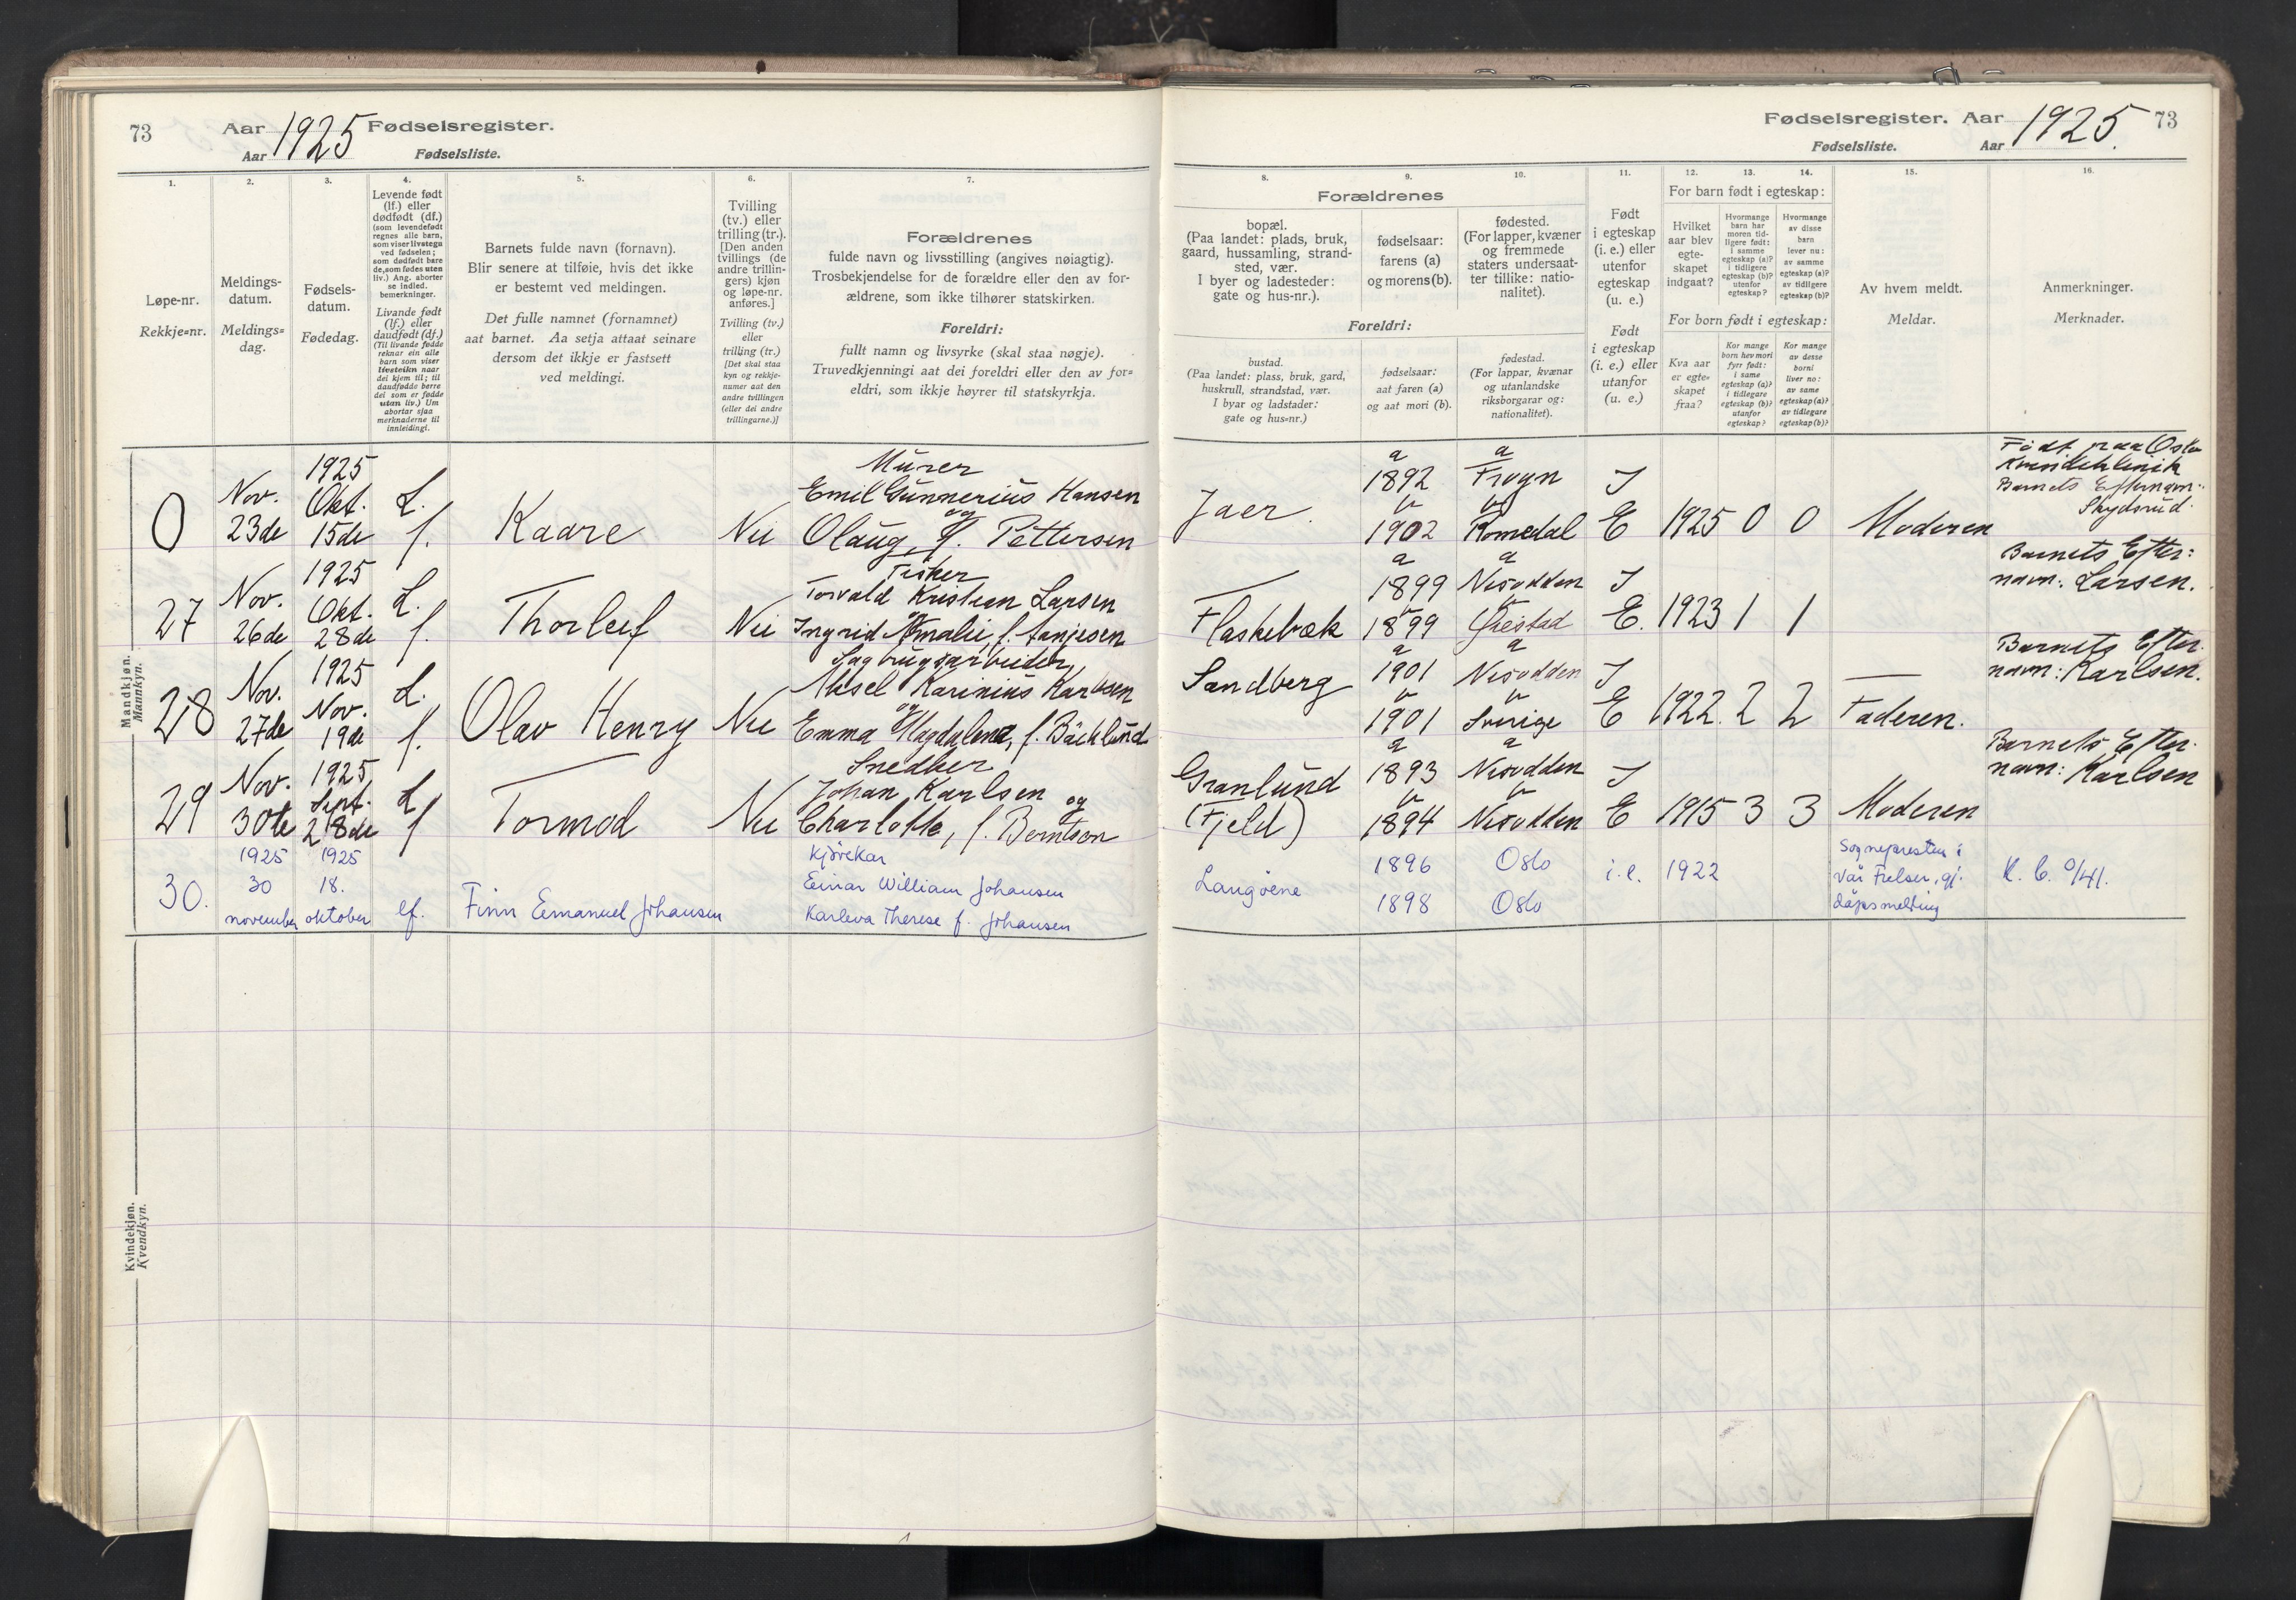 73
Aar 1925 Fødselsregister.
Aar
Fødselsliste.
1.
Løpe-nr.
Rekkje=nr.
2.
Meldings-
datum.
Meldings=
dag.
3.
Fødsels-
datum.
Fødedag.
4.
Levende født
(lf.) eller
dødfødt (df.)
(som levendefødt
regnes alle barn,
som viser livstegn
ved fødselen;
som dødfødt bare
de, som fødes uten
liv.) Ang. aborter
se indled.
bemerkninger.
Livande født
(lf.) eller
daudfødt (df.)
(Til livande fødde
reknar ein alle
barn som viser
livsteikn naar
dei kjem til; til
daudfødde berre
dei som er fødde
utan liv.) Um
abortar sjaa
merknaderne til
innleidingi.
5.
Barnets fulde navn (fornavn).
Blir senere at tilføie, hvis det ikke
er bestemt ved meldingen.
Det fulle namnet (fornamnet)
aat barnet. Aa setja attaat seinare
dersom det ikkje er fastsett
ved meldingi.
6.
Tvilling
(tv.) eller
trilling (tr.).
[Den anden
tvillings (de
andre trillin-
gers) kjøn
og løpe-nr.
anføres.]
Tvilling (tv.)
eller
trilling (tr.)
[Det skal staa
kyn og rekkje-
numer aat den
andre tvillingen
(eller dei andre
trillingarne.)]
7.
Forældrenes
fulde navn og livsstilling (angives nøiagtig).
Trosbekjendelse for de forældre eller den av for-
ældrene, som ikke tilhører statskirken.
Foreldri:
fullt namn og livsyrke (skal staa nøgje).
Truvedkjenningi aat dei foreldri eller den av for=
eldri, som ikkje høyrer til statskyrkja.
Mandkjøn.
Mannkyn.
0
Nov.
23de
1925
Okt.
15de
L.
f.
Kaare
Nei
Murer
Emil Gunnerius Hansen
og
Olaug, f. Pettersen
27
Nov.
26de
1925
Okt.
28de
L.
f.
Thorleif
Nei
Fisker
Torvald Kristian Larsen
og
Ingrid Amalie, f.
28
Nov.
27de
1925
Nov.
19de
L.
f.
Olav Henry
Nei
Sagbrugsarbeider,
Aksel Karinius Karlsen
og
Emma Magdalena, f. Bäcklund
29
Nov.
30te
1925
Sept.
28de
L
f
Tormod
Nei
Snedker
Johan Karlsen
og
Charlotte, f. Berntsen
30.
1925
30
november
1925
18.
oktober
lf.
Finn Emanuel Johansen
kjørekar
Einar William Johansen
Karleva Therese f. Johansen
Kvindekjøn.
Kvendkyn.
Fødselsregister. Aar 1925.
73
Fødselsliste.
Aar
8.
9.
10.
Forældrenes
bopæl.
(Paa landet: plads, bruk,
gaard, hussamling, strand-
sted, vær.
I byer og ladesteder:
gate og hus-nr.).
fødselsaar:
farens (a)
og morens(b).
fødested.
(For lapper, kvæner
og fremmede
staters undersaat-
ter tillike: natio-
nalitet).
Foreldri:
bustad.
(Paa landet: plass, bruk, gard,
huskrull, strandstad, vær.
I byar og ladstader:
gate og hus=nr.)
fødselsaar:
aat faren (a)
og aat mori (b).
fødestad.
(For lappar, kvænar
og utanlandske
riksborgarar og:
nationalitet).
11.
Født
i egteskap
(i. e.) eller
utenfor
egteskap
(u. e.)
Født
i egteskap
(i. e.) eller
utanfor
(u. e.)
12.
13.
14.
For barn født i egteskap:
Hvilket
aar blev
egte-
skapet
indgaat?
Hvormange
barn har
moren tid-
ligere født:
i samme
egteskap (a)?
i tidligere
egteskap (b)?
utenfor
egteskap?
Hvormange
av disse
barn
lever nu:
av samme
egteskap (a)?
av tidligere
egteskap (b)?
For born født i egteskap:
Kva aar
er egte=
skapet
fraa?
Kor mange
born hev mori
fyrr født:
i same
egteskap (a)?
i tidlegare
egteskap (b)?
utanfor
egteskap?
Kor mange
av desse
borni
liver no:
av same
egteskap(a)?
av tidlegare
egteskap(b)?
15.
Av hvem meldt.
Meldar.
16.
Anmerkninger.
Merknader.
Jaer.
a
1892
b
1902
a
Frogn
b
Romedal
I
E
1925
0
0
Moderen
Født paa Oslo
Kvindeklinik
Barnets Efternavn:
Skydsrud.
Flaskebæk
a
1899
b
1899
a
Nesodden
b
I
E.
1923
1
1
Barnets Efter:
navn: Larsen.
Sandberg
a
1901
b
1901
a
Nesodden
b
Sverige
I
E
1922.
2
2
Faderen.
Barnets Efter.
navn: Karlsen.
Granlund
(Fjeld)
a
1893
b
1894
a
Nesodden
b
Nesodden
I
E
1915
3
3
Moderen
Barnets Efter.
navn: Karlsen
Langøene
1896
1898
Oslo
Oslo
i.e.
1922
Sognepresten i
Vår Frelser, gj.
dåpsmelding